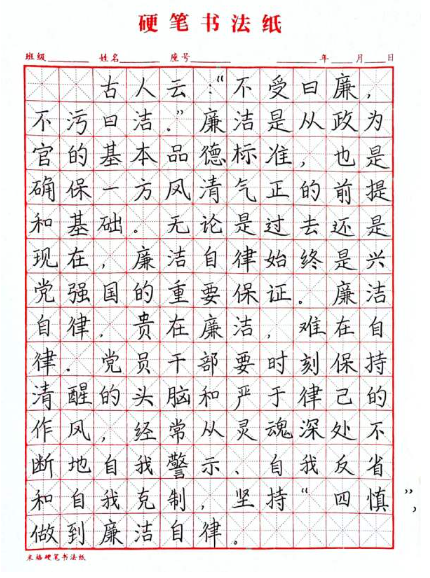 硬笔书法纸
班级 姓名 座号 年 月 日
古人云：“不受曰廉，
不污曰洁。”廉洁是从政为
官的基本品德标准，也是
确保一方风清气正的前提
和基础。无论是过去还是
现在，廉洁自律始终是兴
党强国的重要保证。廉洁
自律，贵在廉洁，难在自
律。党员干部要时刻保持
清醒的头脑和严于律己的
作风，经常从灵魂深处不
断地自我警示、自我反省
和自我克制，坚持“四慎”，
做到廉洁自律。
米格硬笔书法纸